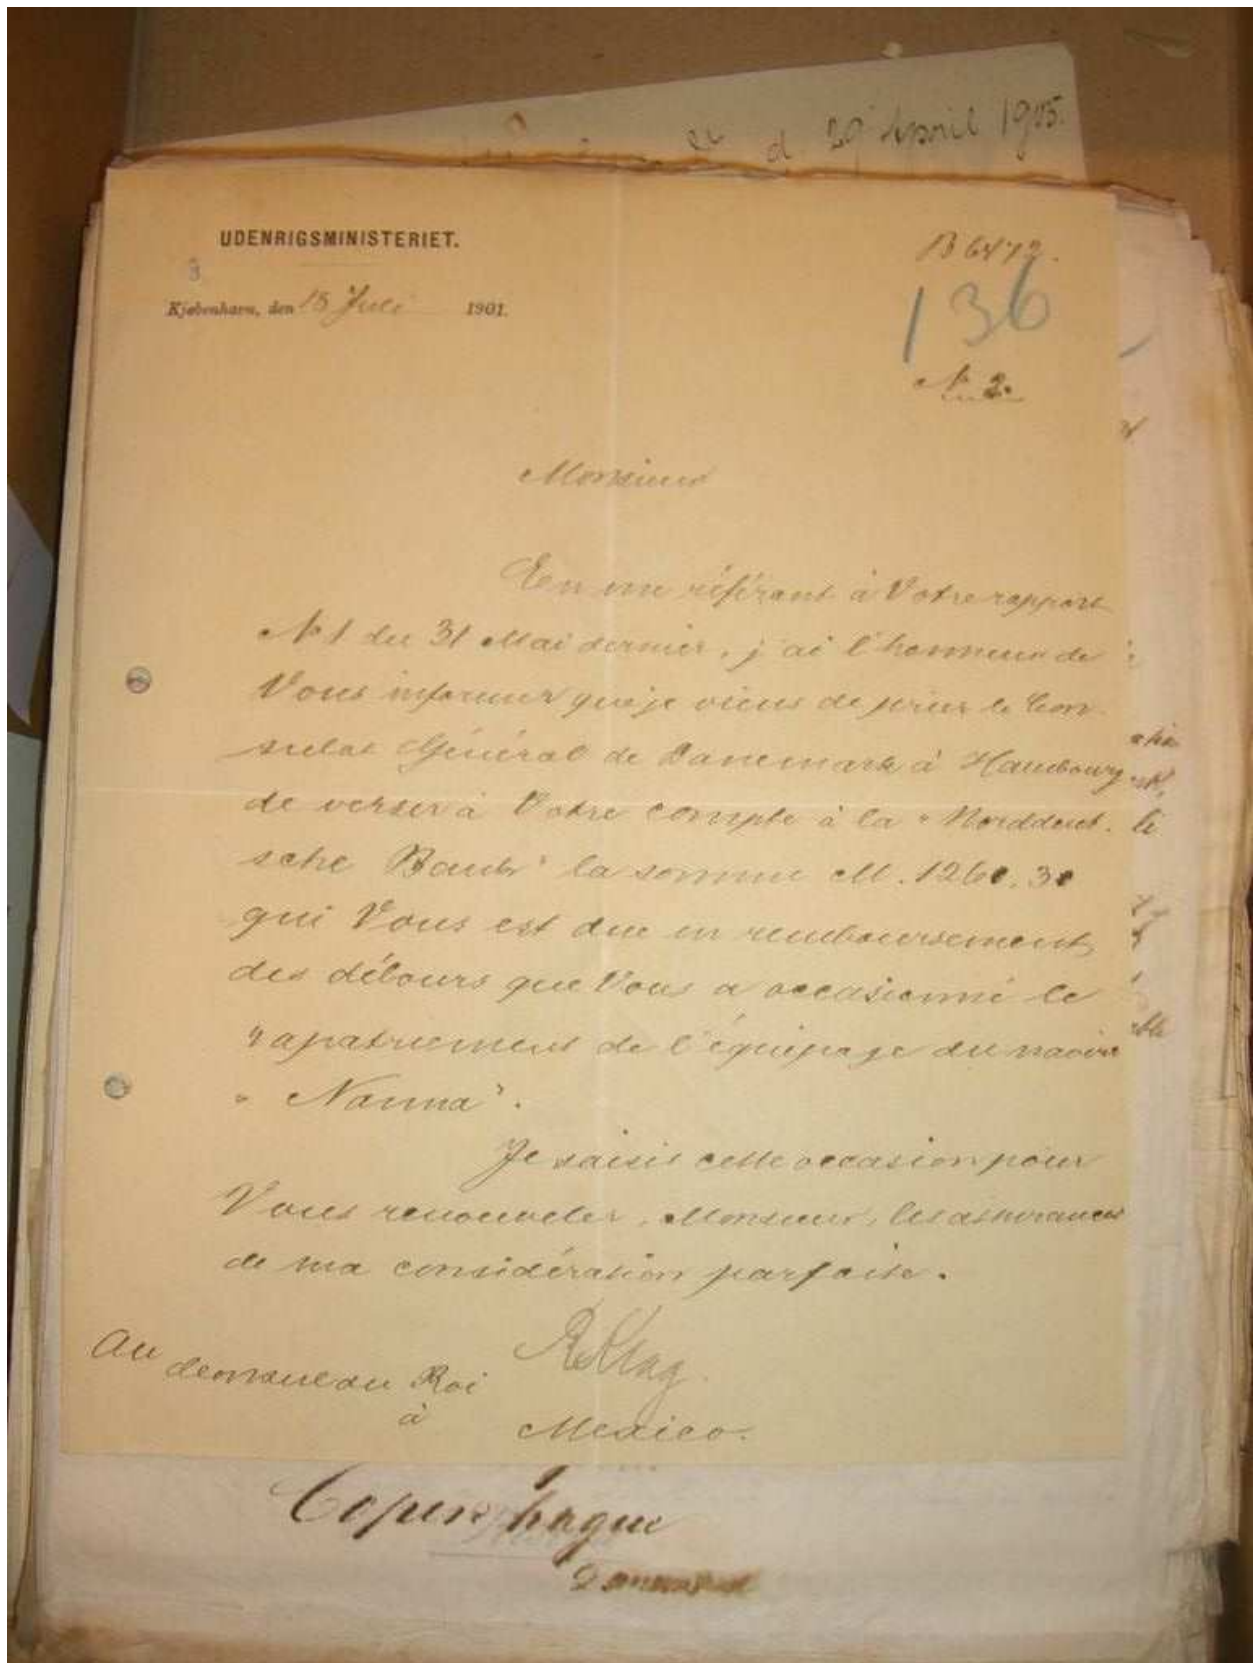 d. 29 April 1905.
UDENRIGSMINISTERIET.
Kjøbenhavn, den 15 Juli 1901.
B 6472.
136
N° 2.
Monsieur
En me référant à Votre rapport
N° 1 du 31 Mai dernier, j'ai l'honneur de
Vous informer que je viens de prier le Con-
sulat Général de Danemark à Hambourg
de verser à Votre compte à la "Norddeut-
sche Bank" la somme M. 1260.30
qui Vous est due en remboursement
des débours que Vous a occasionné le
rapatriement de l'équipage du navire
"Nanna".
Je saisis cette occasion pour
Vous renouveler, Monsieur, les assurances
de ma considération parfaite.
Au
Consul du Roi
à
Mexico.
Copenhague